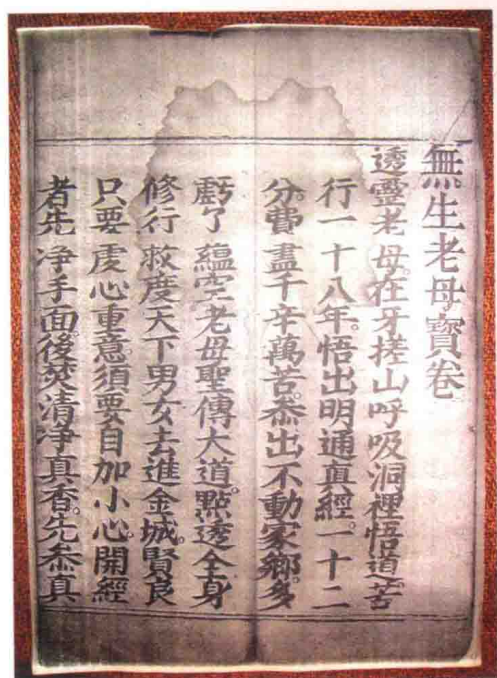 無生老母寶卷
透靈老母。在牙搓山呼吸洞裡悟道。苦
行一十八年。悟出明通真經。一十二
分。費盡千辛萬苦。叅出不動家鄉。多
虧了蘊空老母聖傳大道。點透全身
修行救度天下男女去進金城。賢良
只要虔心重意。須要自加小心。開經
者先净手面。後焚清净真香。先叅真